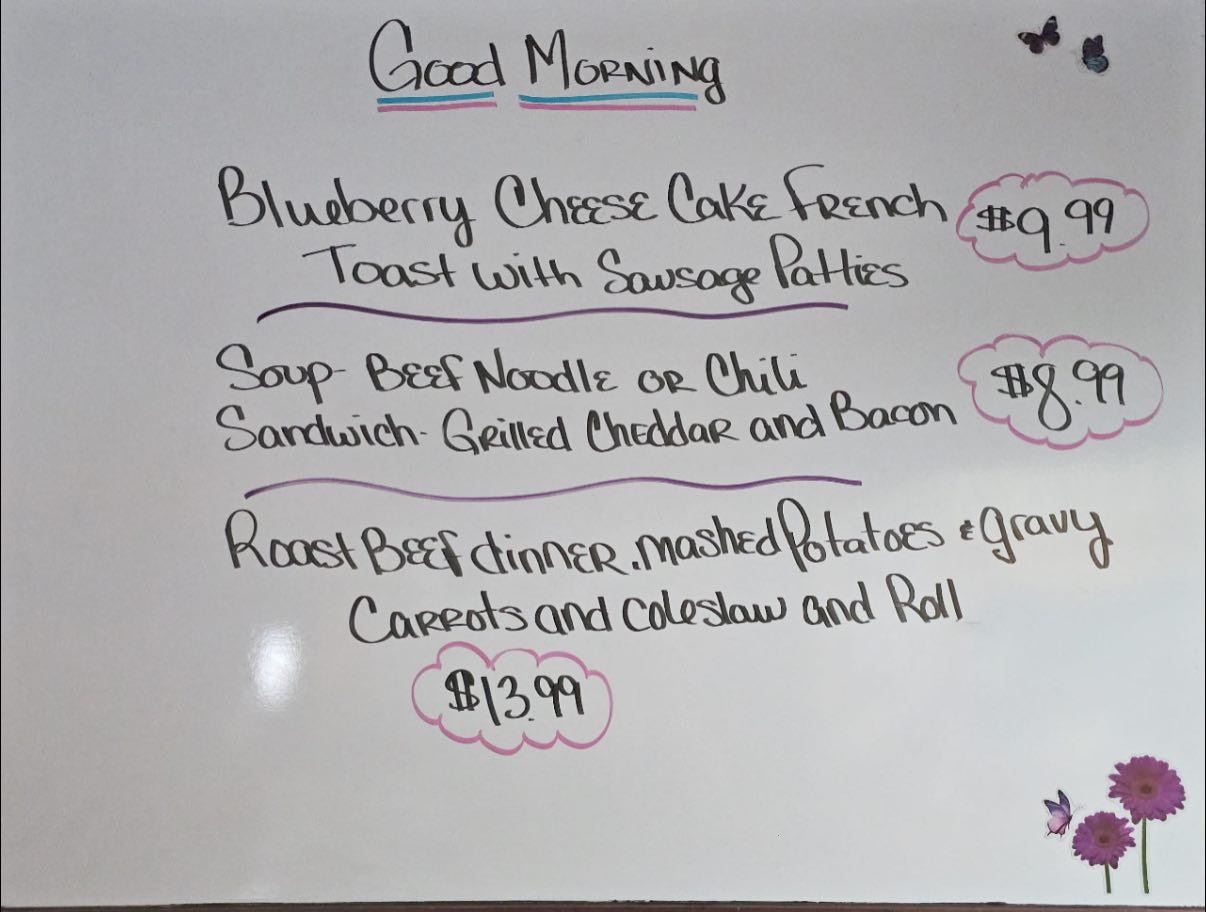 Good Morning
Blueberry Cheese Cake French $9.99
Toast with Sausage Patties
Soup- Beef Noodle or Chili $8.99
Sandwich- Grilled Cheddar and Bacon
Roast Beef dinner. mashed Potatoes & gravy
Carrots and coleslaw and Roll
$13.99